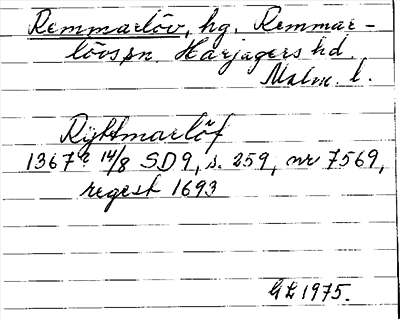 Remmarlöv, hg. Remmar-
lövs sn. Harjagers hd.
Malm. l.
Ryktmarlöf
1367 14/8 SD9, s. 259, nr 7569,
regest 1693
GL 1975.